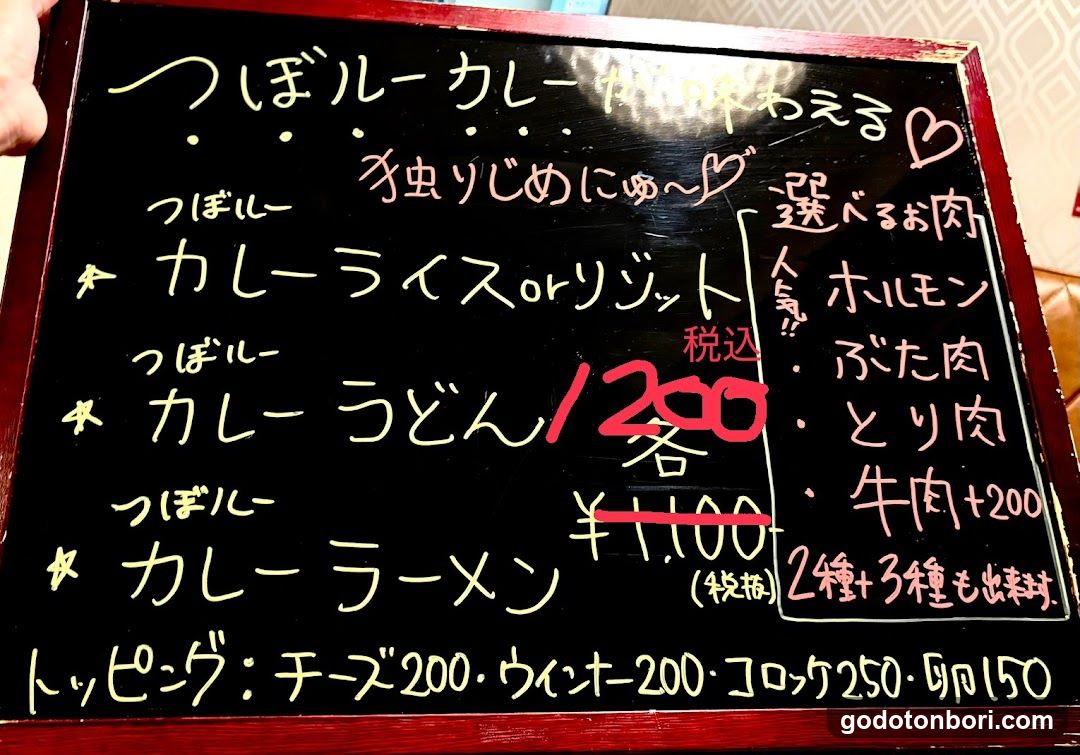 つぼルーカレーが味わえる♡
独りじめにゅ〜♡
つぼルー
★ カレーライスorリゾット
つぼルー
★ カレーうどん
つぼルー
★ カレーラーメン
税込
1200
各
¥1,100-
(税抜)
選べるお肉
人気!! ホルモン
・ぶた肉
・とり肉
・牛肉+200
2種+3種も出来ます。
トッピング:チーズ200・ウインナー200・コロッケ250・卵150
godotonbori.com